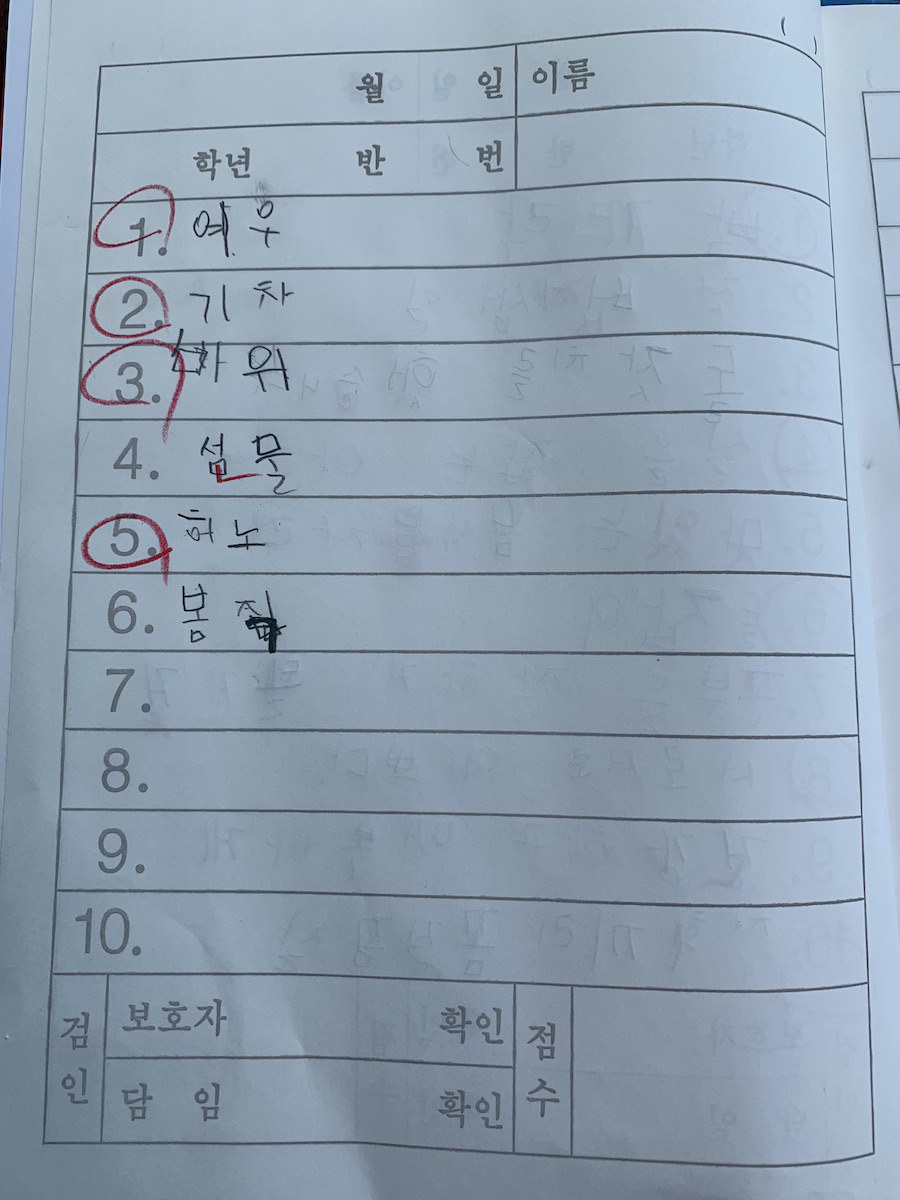 월 일 이름
학년 반 번
1. 여우
2. 기차
3. 바위
4. 섬물
5. 허노
6. 봄
7.
8.
9.
10.
검인 보호자 확인 점수
담 임 확인